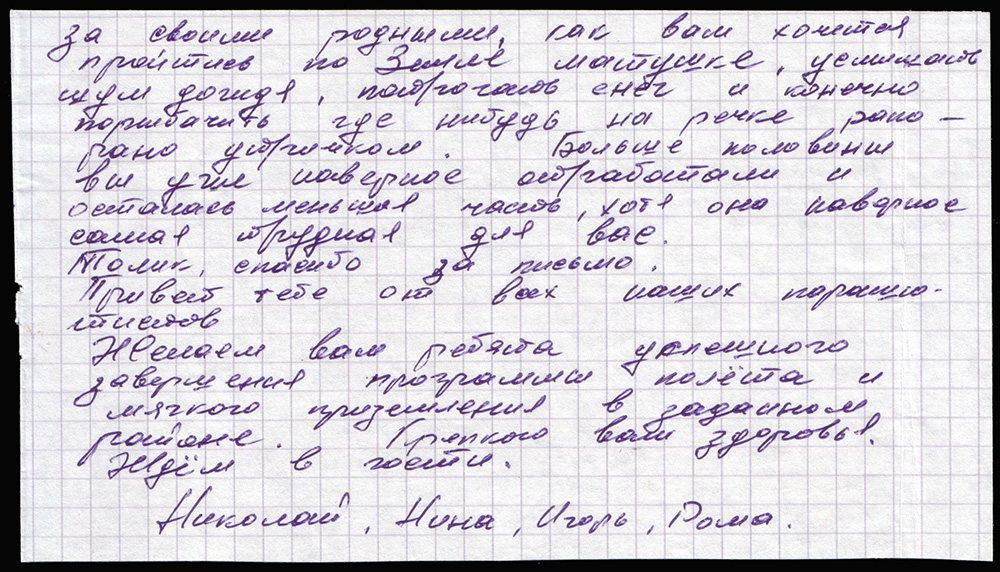 за своими родными, как вам хочется
пройтись по Земле матушке, услышать
шум дождя, потрогать снег и конечно
порыбачить где нибудь на речке рано —
рано утречком. Больше половины
вы уже наверное отработали и
осталась меньшая часть, хотя она наверное
самая трудная для вас.
Толик, спасибо за письмо.
Привет тебе от всех наших парашю-
тистов
Желаем вам ребята успешного
завершения программы полёта и
мягкого приземления в заданном
районе. Крепкого вам здоровья.
Ждём в гости.
Николай, Нина, Игорь, Рома.